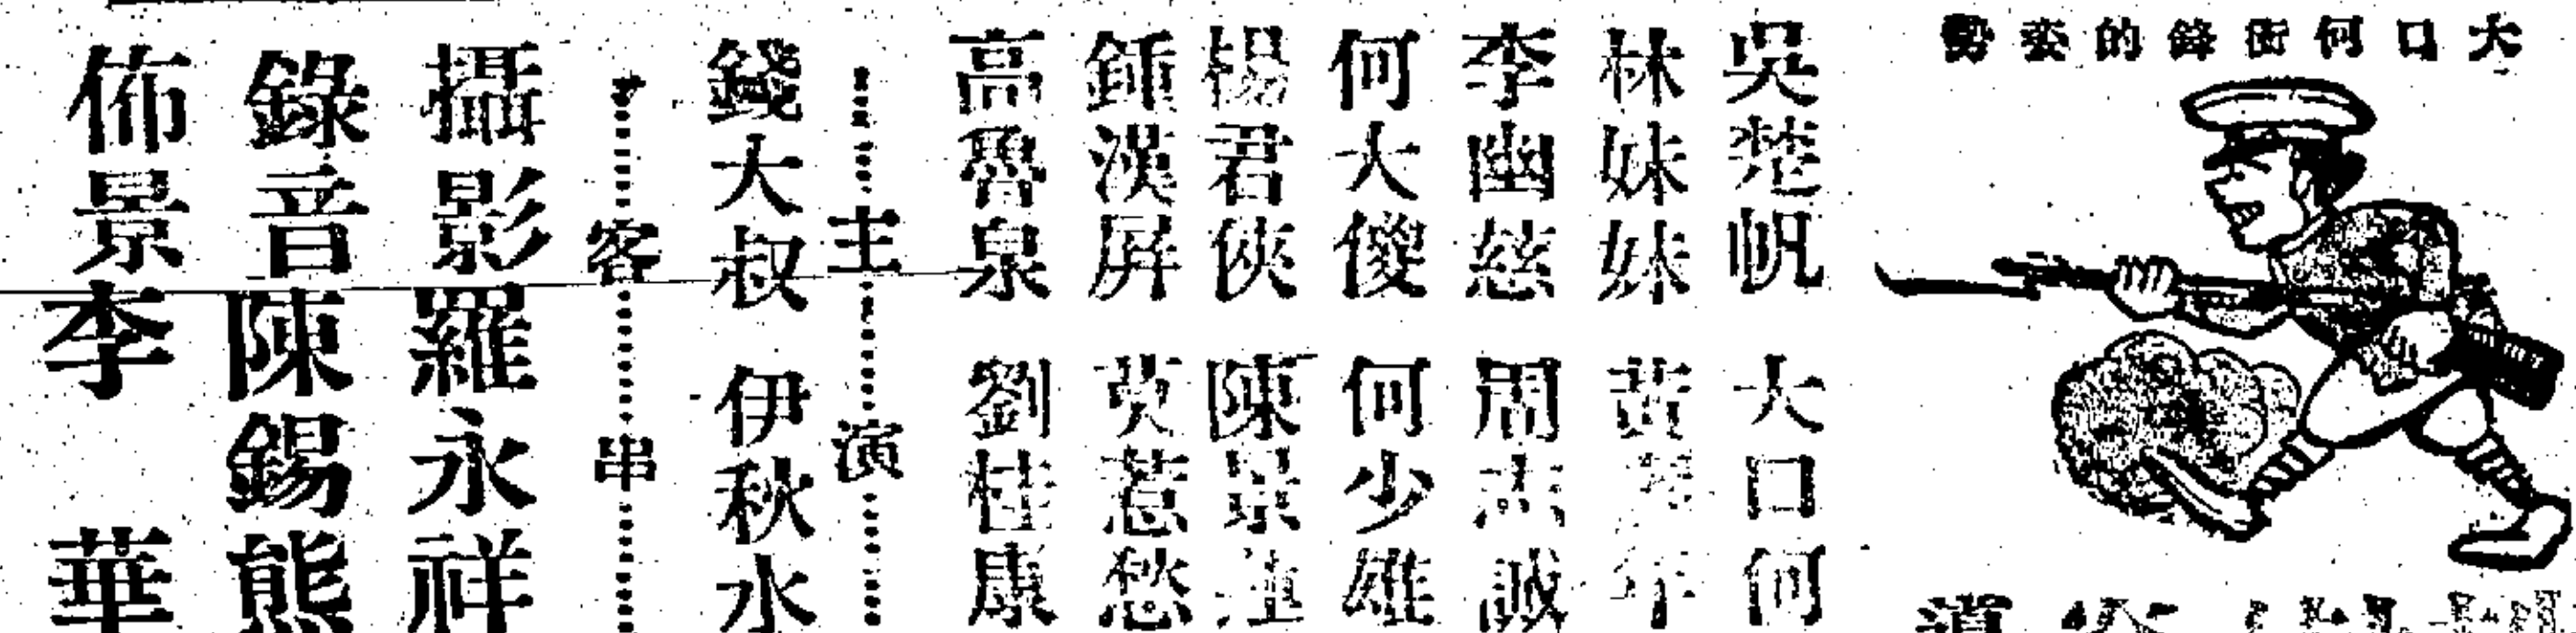 大口何衝鋒的姿勢
吳楚帆 大口何
林妹妹 黃 年
李幽慈 周志誠
何大傻 何少雄
楊君俠 陳景
鍾漢屏 莫惹愁
高魯泉 劉桂康
主演
錢大叔 伊秋水
客串
攝影 羅永祥
錄音 陳錫熊
佈景 李華